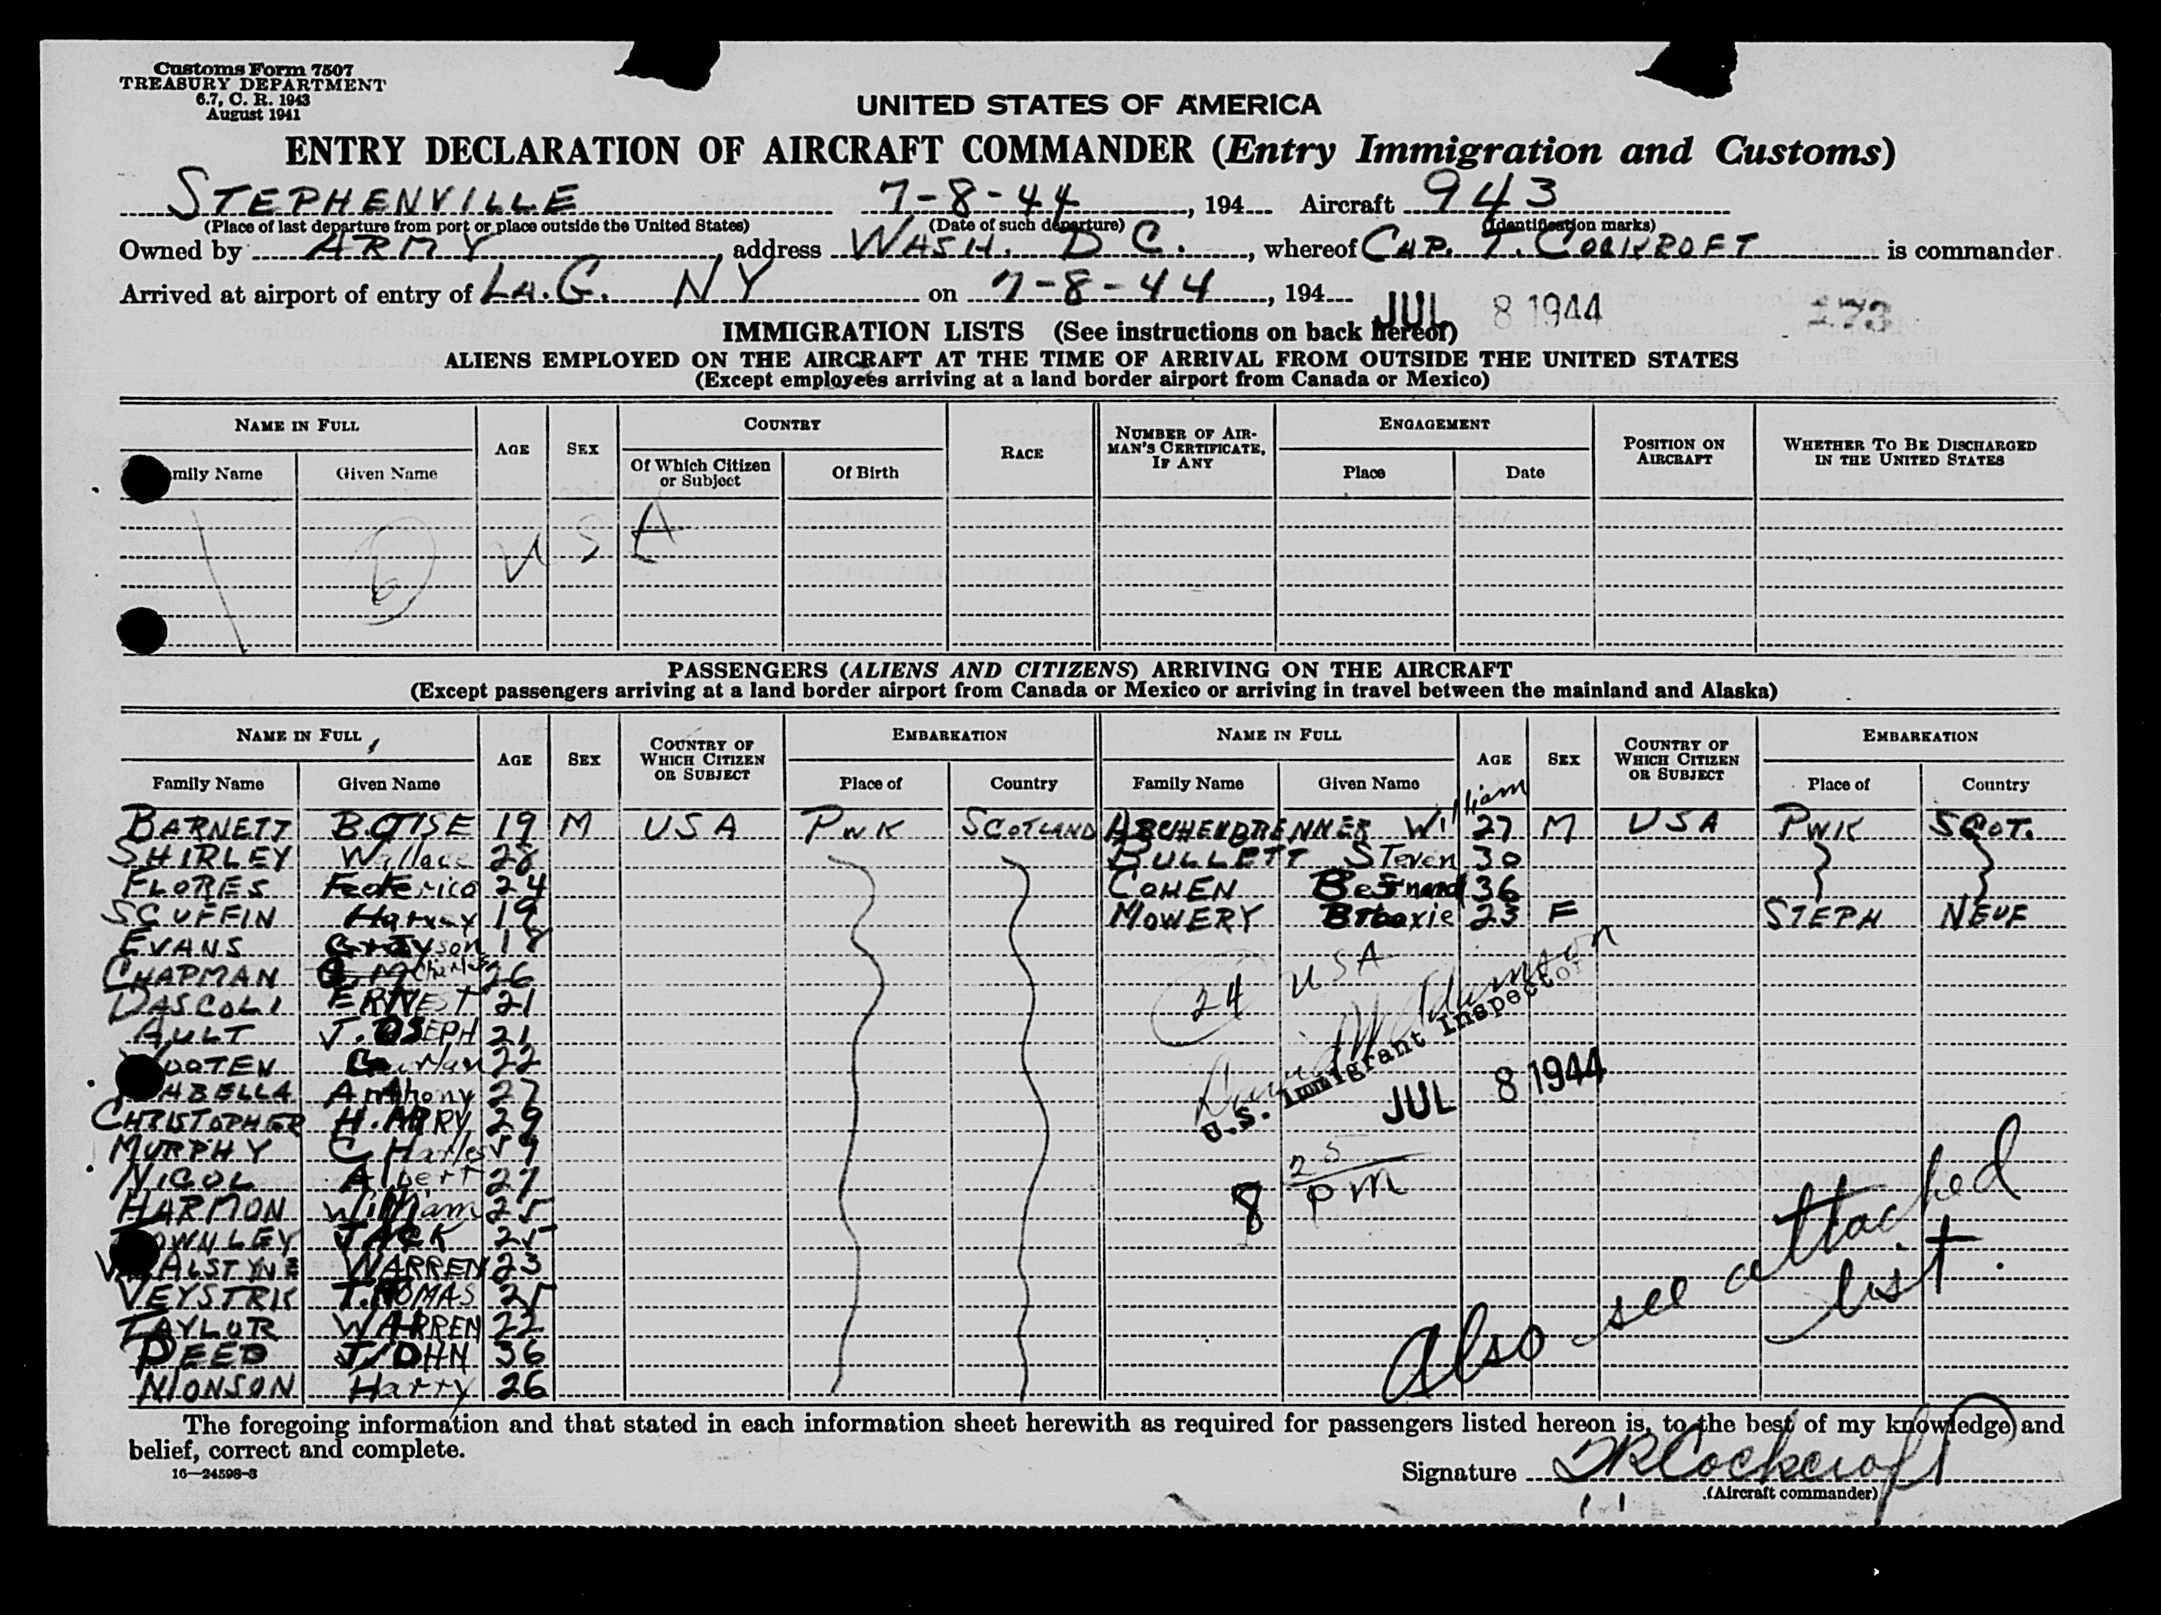 Customs Form 7507
TREASURY DEPARTMENT
6.7, C. R. 1943
August 1941
UNITED STATES OF AMERICA
ENTRY DECLARATION OF AIRCRAFT COMMANDER (Entry Immigration and Customs)
STEPHENVILLE 7-8-44, 194 Aircraft 943
(Place of last departure from port or place outside the United States) (Date of such departure) (Identification marks)
Owned by ARMY, address WASH. D C., whereof CAP. T. COCKROFT is commander.
Arrived at airport of entry of LA.G. NY on 7-8-44, 194
JUL 8 1944 273
IMMIGRATION LISTS (See instructions on back hereof)
ALIENS EMPLOYED ON THE AIRCRAFT AT THE TIME OF ARRIVAL FROM OUTSIDE THE UNITED STATES
(Except employees arriving at a land border airport from Canada or Mexico)
NAME IN FULL AGE SEX COUNTRY RACE NUMBER OF AIRMAN'S CERTIFICATE, IF ANY ENGAGEMENT POSITION ON AIRCRAFT WHETHER TO BE DISCHARGED IN THE UNITED STATES
mily Name Given Name Of Which Citizen or Subject Of Birth Place Date
6 U S A
PASSENGERS (ALIENS AND CITIZENS) ARRIVING ON THE AIRCRAFT
(Except passengers arriving at a land border airport from Canada or Mexico or arriving in travel between the mainland and Alaska)
NAME IN FULL AGE SEX COUNTRY OF WHICH CITIZEN OR SUBJECT EMBARKATION NAME IN FULL AGE SEX COUNTRY OF WHICH CITIZEN OR SUBJECT EMBARKATION
Family Name Given Name Place of Country Family Name Given Name Place of Country
BARNETT 19 M USA PWK SCOTLAND William 27 M USA PWK SCOT.
SHIRLEY Wallace 28 BULLETT STeven 30
FLORES Federico 24 COHEN Bernard 36
SCUFFIN Harvey 19 MOWERY 23 F STEPH NEUF
EVANS Grayson 18
CHAPMAN Charles 26
DASCOLI ERNEST 21
AULT J. OSEPH 21
OOTEN 22
ABELLA Anthony 27
CHRISTOPHER H.ARRY 29
MURPHY CHarles 59
NICOL Albert 27
HARMON William 25
OWNLEY JACK 25
V ALSTYNE WARREN 23
VEYSTRK T.HOMAS 25
TAYLOR WARREN 22
REED JOHN 36
MONSON Harry 26
24 USA
U.S. Immigrant Inspector
JUL 8 1944
8 25 pm
Also see attached list.
The foregoing information and that stated in each information sheet herewith as required for passengers listed hereon is, to the best of my knowledge and
belief, correct and complete.
16—24598-3
Signature TR Cockcroft
(Aircraft commander)